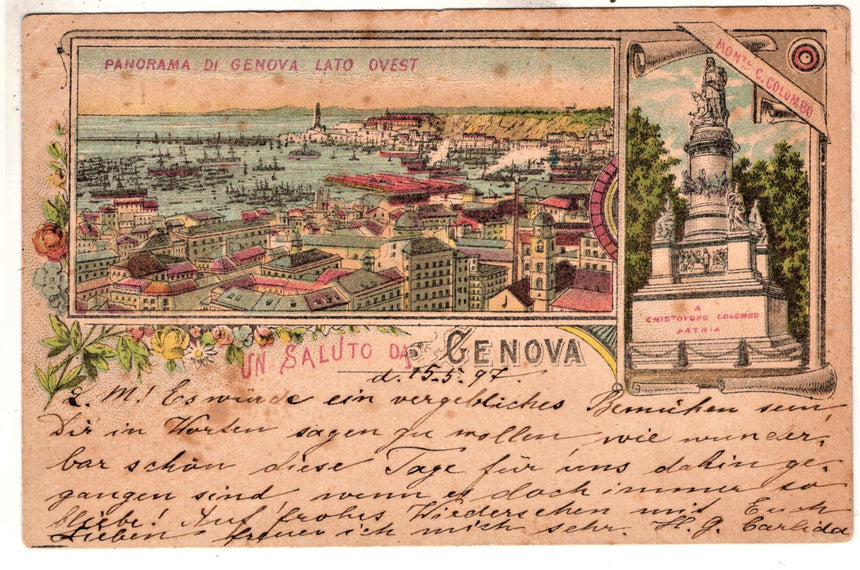 PANORAMA DI GENOVA LATO OVEST
MONTE C. COLOMBO
A
CRISTOFORO COLOMBO
PATRIA
UN SALUTO DA GENOVA
d. 15.5.97.
L. M! Es würde ein vergebliches Bemühen sein,
Dir in Worten sagen zu wollen, wie wunder-
bar schön diese Tage für uns dahin ge-
gangen sind, wenn es doch immer so
bliebe! Auf frohes Wiedersehen mit Euch
Lieben freue ich mich sehr. H. g.